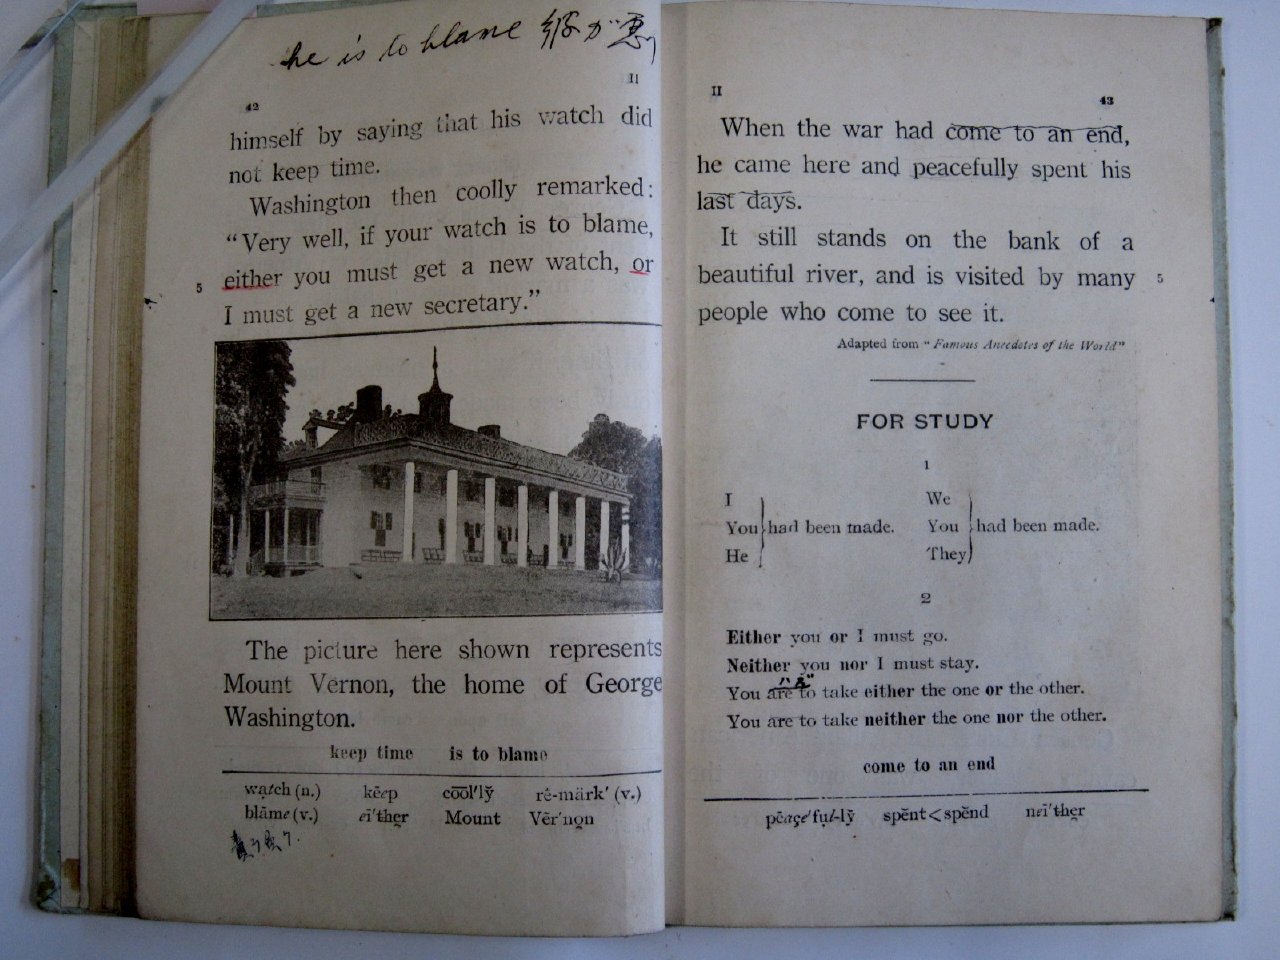 he is to blame 彼が悪い
11
42
himself by saying that his watch did
not keep time.
Washington then coolly remarked:
“Very well, if your watch is to blame,
either you must get a new watch, or
5
I must get a new secretary.”
The picture here shown represents
Mount Vernon, the home of George
Washington.
keep time is to blame
wạtch (n.) kēep co͞ol′lў rē-märk′ (v.)
blāme (v.) ēi′thẽr Mount Vẽr′nọn
11
43
When the war had come to an end,
he came here and peacefully spent his
last days.
It still stands on the bank of a
beautiful river, and is visited by many
5
people who come to see it.
Adapted from “Famous Anecdotes of the World”
FOR STUDY
1
I We
You had been made. You had been made.
He They
2
Either you or I must go.
Neither you nor I must stay.
You are to take either the one or the other.
You are to take neither the one nor the other.
come to an end
pēaçe′fụl-lў spĕnt<spĕnd nēi′thẽr